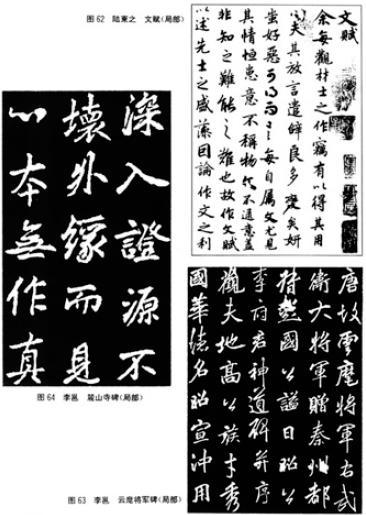 图 62 陆柬之 文赋(局部)
文賦
余每觀材士之作竊有以得其用
心夫其放言遣辭良多變矣妍
蚩好惡可得而言每自属文尤見
其情恒患意不稱物文不逮意蓋
非知之難能之難也故作文賦
以述先士之盛藻因論作文之利
深入證源不
壞外緣而見
心本無作真
图 64 李邕 麓山寺碑(局部)
唐故雲麾將軍右武
衛大將軍贈秦州都
督彭國公謚曰昭公
李府君神道碑并序
觀夫地高公族才秀
國華德名昭宣沖用
图 63 李邕 云麾将军碑(局部)